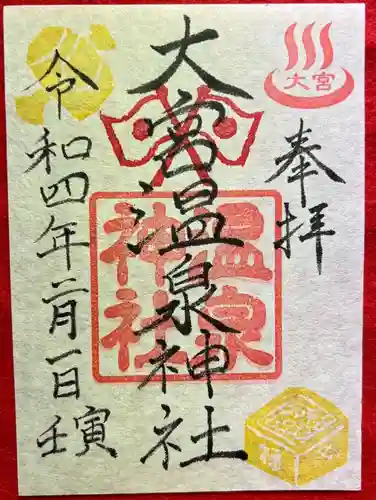 奉拝
大宮
大宮温泉神社
温泉神社
令和四年二月一日
壬寅